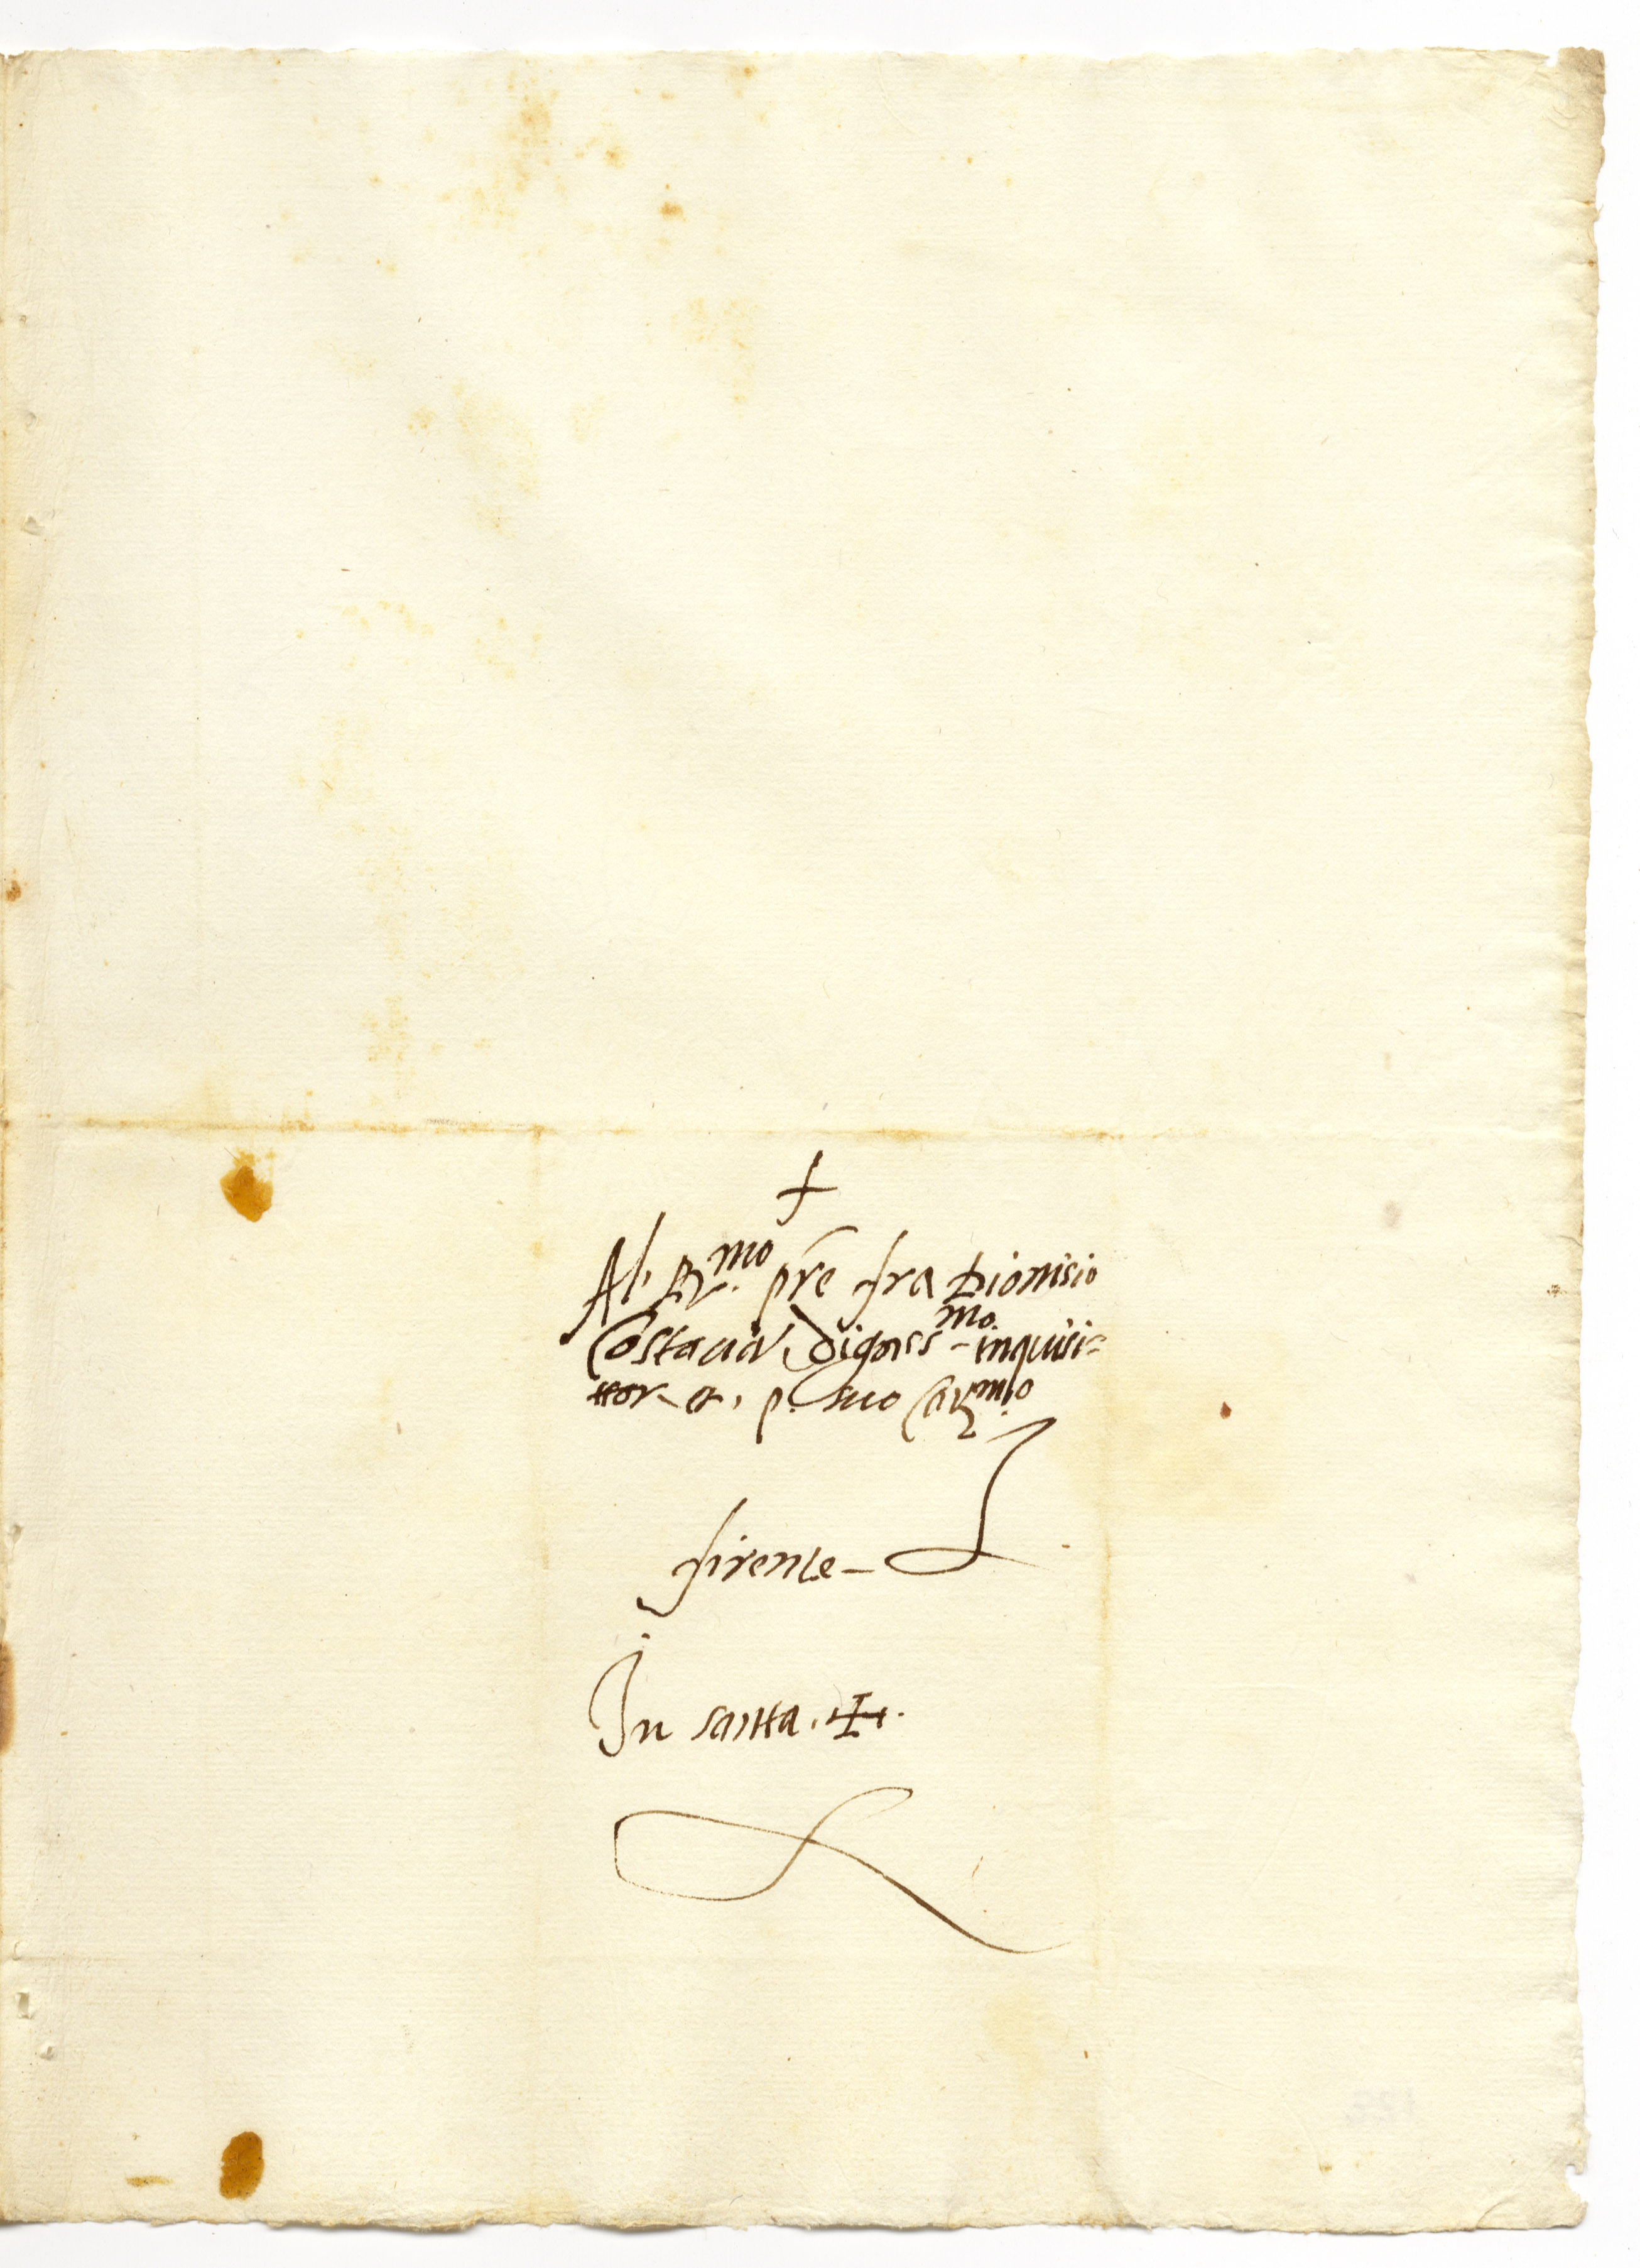 +
Al R.mo pre fra Dionisio
Costacia. digniss.mo inquisi=
tor. et. p. suo Car.mo
firenze –
In santa .+.